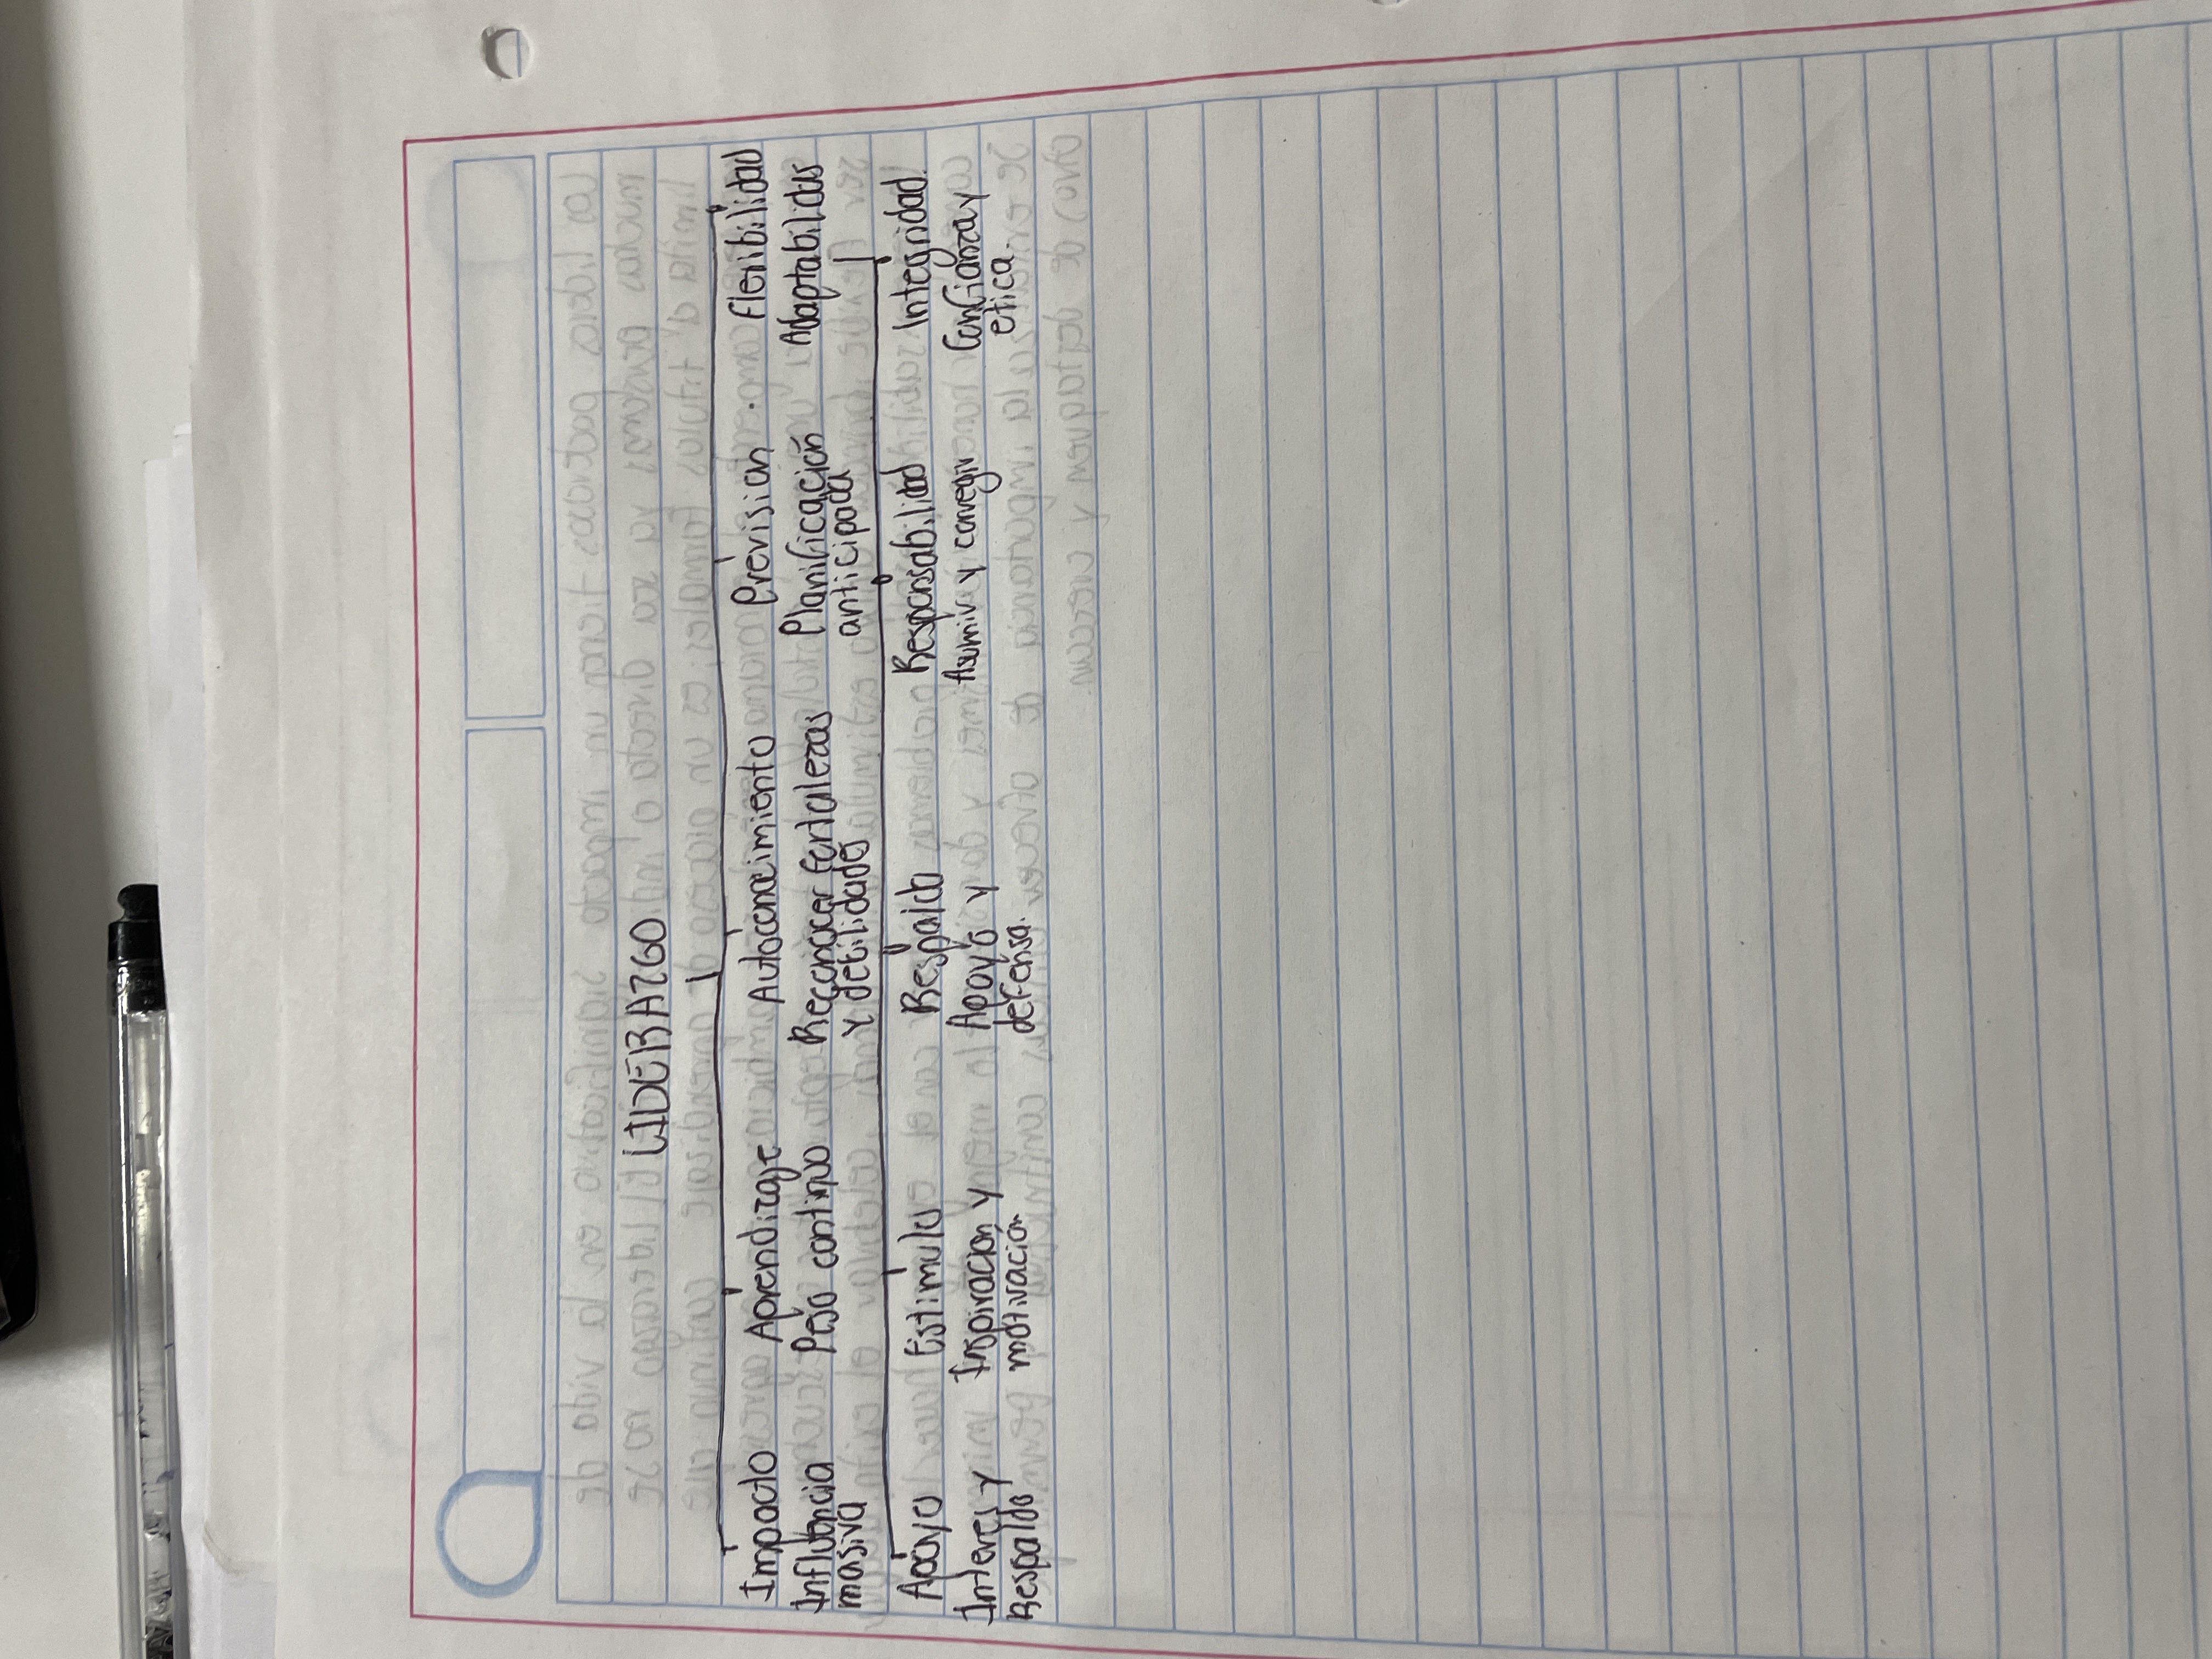 LIDERAZGO
Impacto Aprendizaje Autoconocimiento Previsión. Flexibilidad
Influencia Peso continuo Reconocer fortalezas Planificación Adaptabilidad
masiva y debilidades anticipada
Apoyo Estimulo Respaldo Responsabilidad Integridad.
Interes y Inspiracion y Apoyo y Asumir y corregir Confianza y
Respaldo motivación defensa. etica.